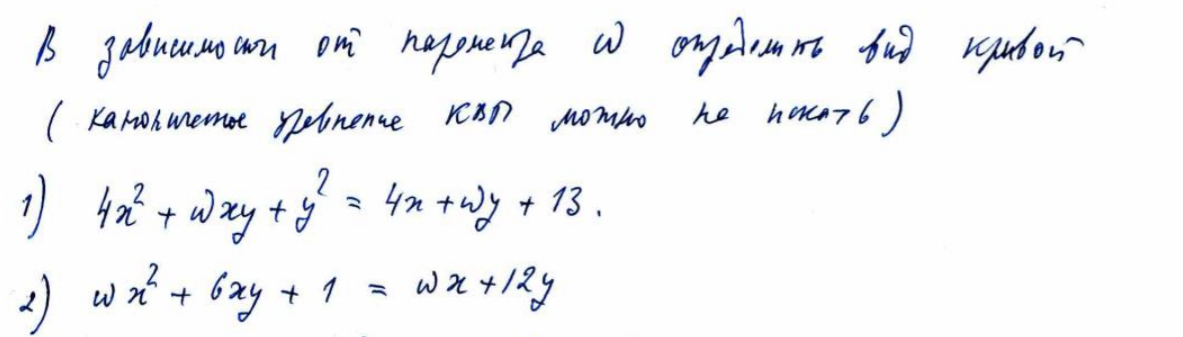 В зависимости от параметра ω определить вид кривой
(каноническое уравнение КВП можно не искать)
1) 4x² + ωxy + y² = 4x + ωy + 13.
2) ωx² + 6xy + 1 = ωx + 12y